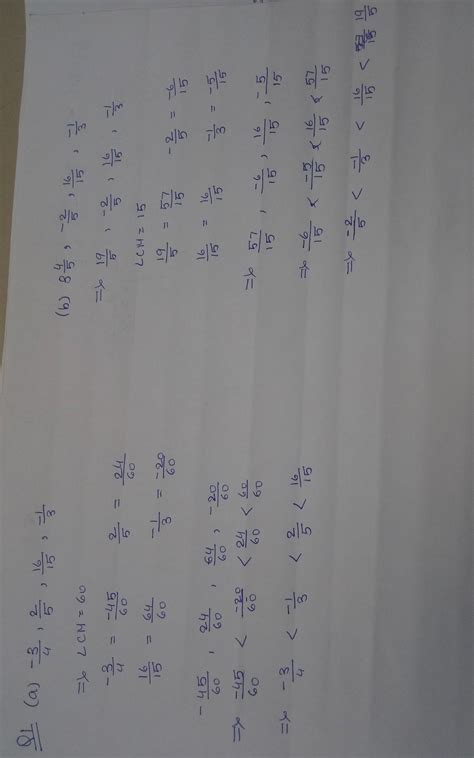 Q1 (a) -3/4 , 2/5 , 16/15 , -1/3
=> LCM = 60
-3/4 = -45/60 2/5 = 24/60
16/15 = 64/60 -1/3 = -20/60
-45/60 , 24/60 , 64/60 , -20/60
=> -45/60 < -20/60 < 24/60 < 60/60
=> -3/4 < -1/3 < 2/5 < 16/15
(b) 3 4/5 , -2/5 , 16/15 , -1/3
=> 19/5 , -2/5 , 16/15 , -1/3
LCM = 15
19/5 = 57/15 -2/5 = -6/15
16/15 = 16/15 -1/3 = -5/15
=> 57/15 , -6/15 , 16/15 , -5/15
=> -6/15 < -5/15 < 16/15 < 57/15
=> -2/5 < -1/3 < 16/15 < 19/5